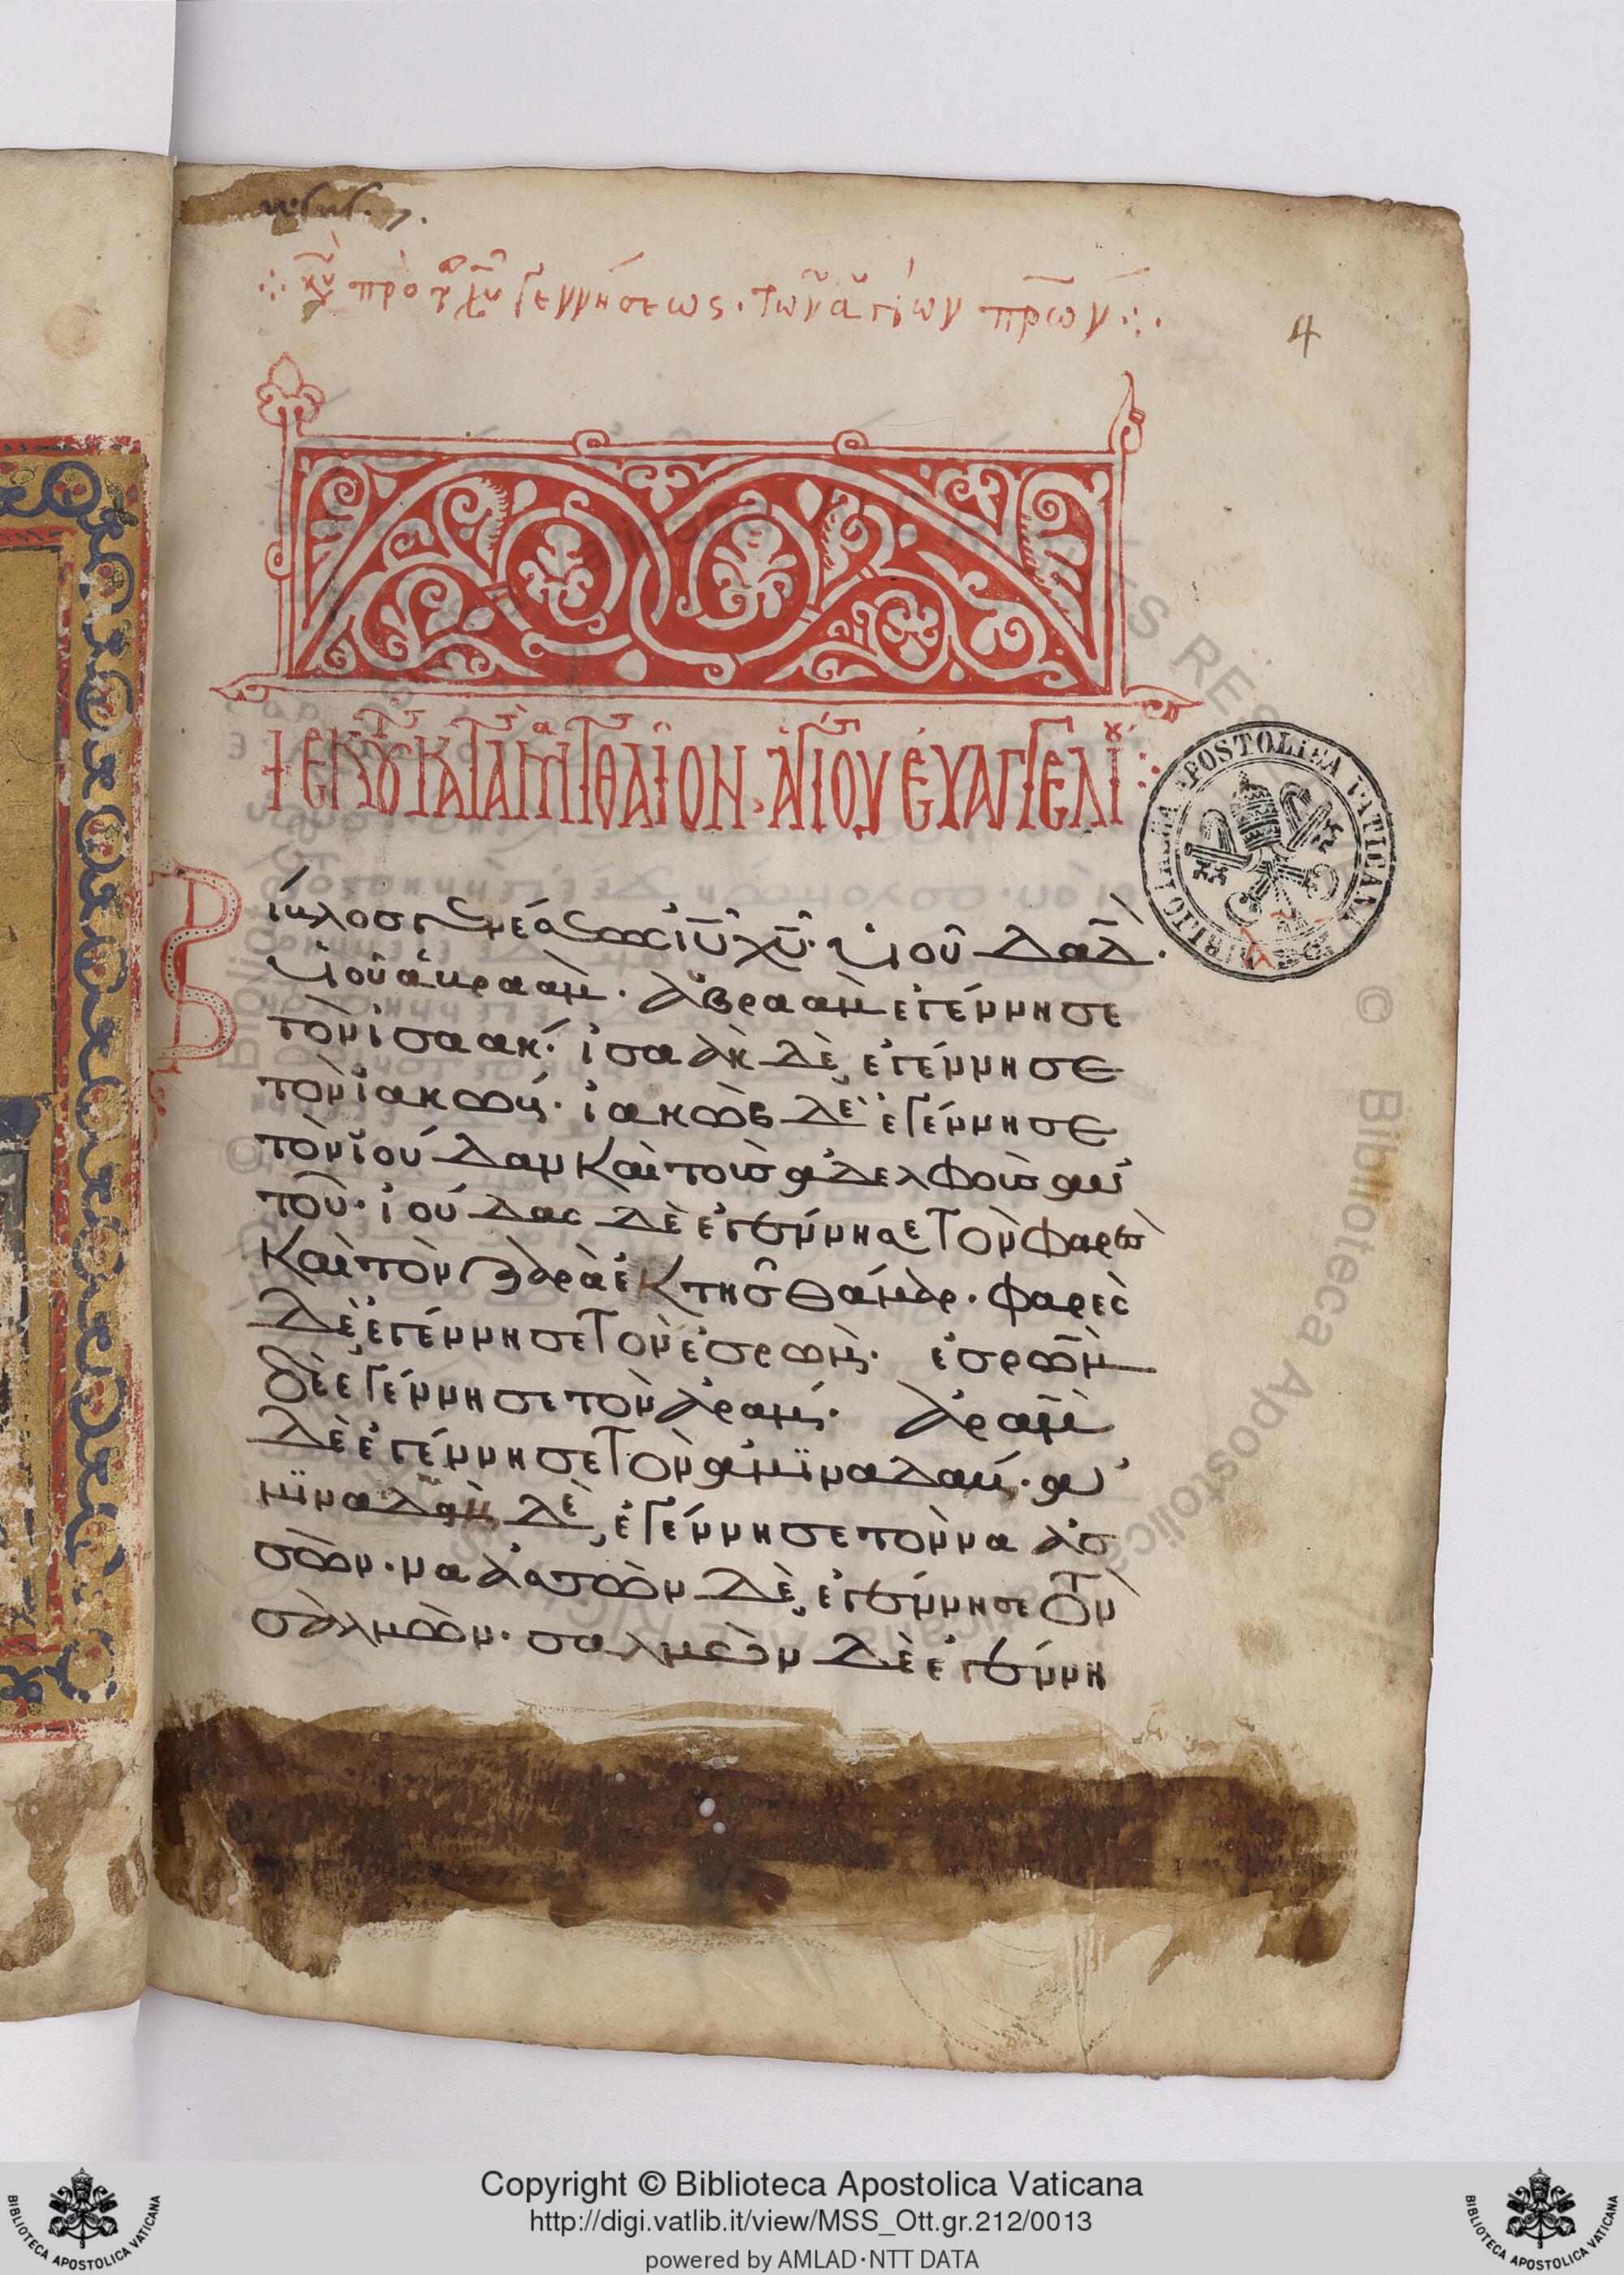 κυ προ τ χυ γεννήσεως· τῶν ἁγίων πρων
4
ἐκ τοῦ κατὰ ματθαῖον ἁγίου εὐαγγελίου
Βίβλος γενέσεως ιυ χυ· υἱοῦ δαδ·
υἱοῦ ἀβραάμ· ἀβραὰμ ἐγέννησε
τὸν ἰσαάκ· ἰσαὰκ δὲ ἐγέννησε
τὸν ἰακώβ· ἰακὼβ δὲ ἐγέννησε
τὸν ἰούδαν καὶ τοὺς ἀδελφοὺς αὐ
τοῦ· ἰούδας δὲ ἐγέννησε τὸν φαρὲς
καὶ τὸν ζαρὰ ἐκ τῆς θάμαρ· φαρὲς
δὲ ἐγέννησε τὸν ἐσρώμ· ἐσρὼμ
δὲ ἐγέννησε τὸν ἀράμ· ἀρὰμ
δὲ ἐγέννησε τὸν ἀμϊναδάμ· ἀ
μϊναδὰμ δὲ ἐγέννησε τὸν ναασ
σών· ναασσὼν δὲ ἐγέννησε τὸν
σαλμών· σαλμὼν δὲ ἐγέννη
BIBLIOTHECA APOSTOLICA VATICANA
Copyright © Biblioteca Apostolica Vaticana
http://digi.vatlib.it/view/MSS_Ott.gr.212/0013
powered by AMLAD·NTT DATA